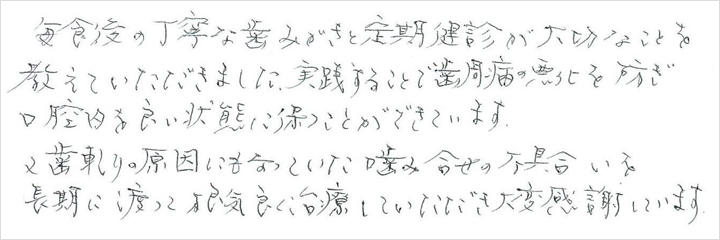 毎食後の丁寧な歯みがきと定期健診が大切なことを
教えていただきました、実践することで歯周病の悪化を防ぎ
口腔内を良い状態に保つことができています.
又歯軋りの原因にもなっていた噛み合せの不具合いを
長期に渡って根気良く治療していただき大変感謝しています.